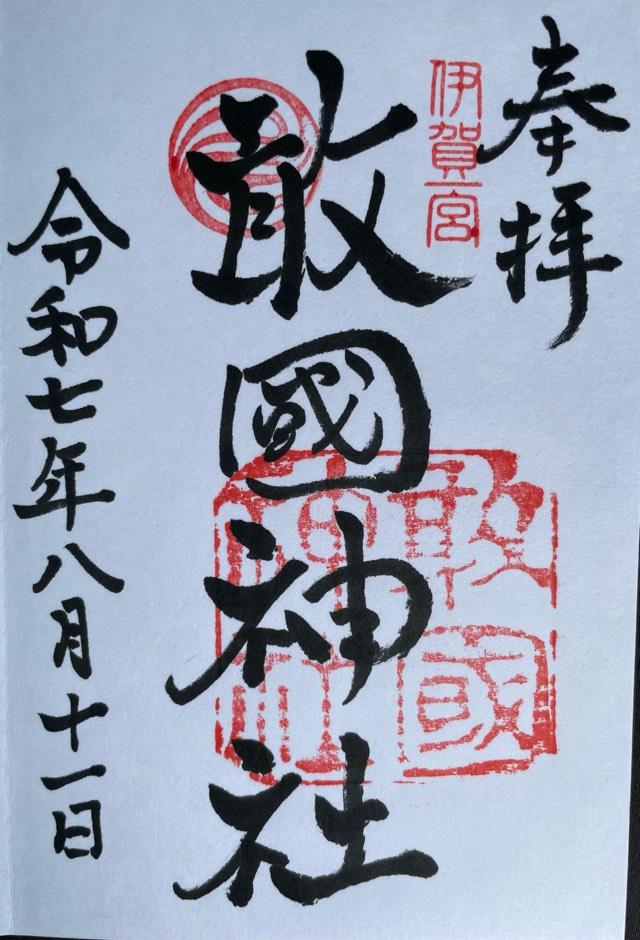 奉拝
伊賀一宮
敢國神社
敢國神社
令和七年八月十一日